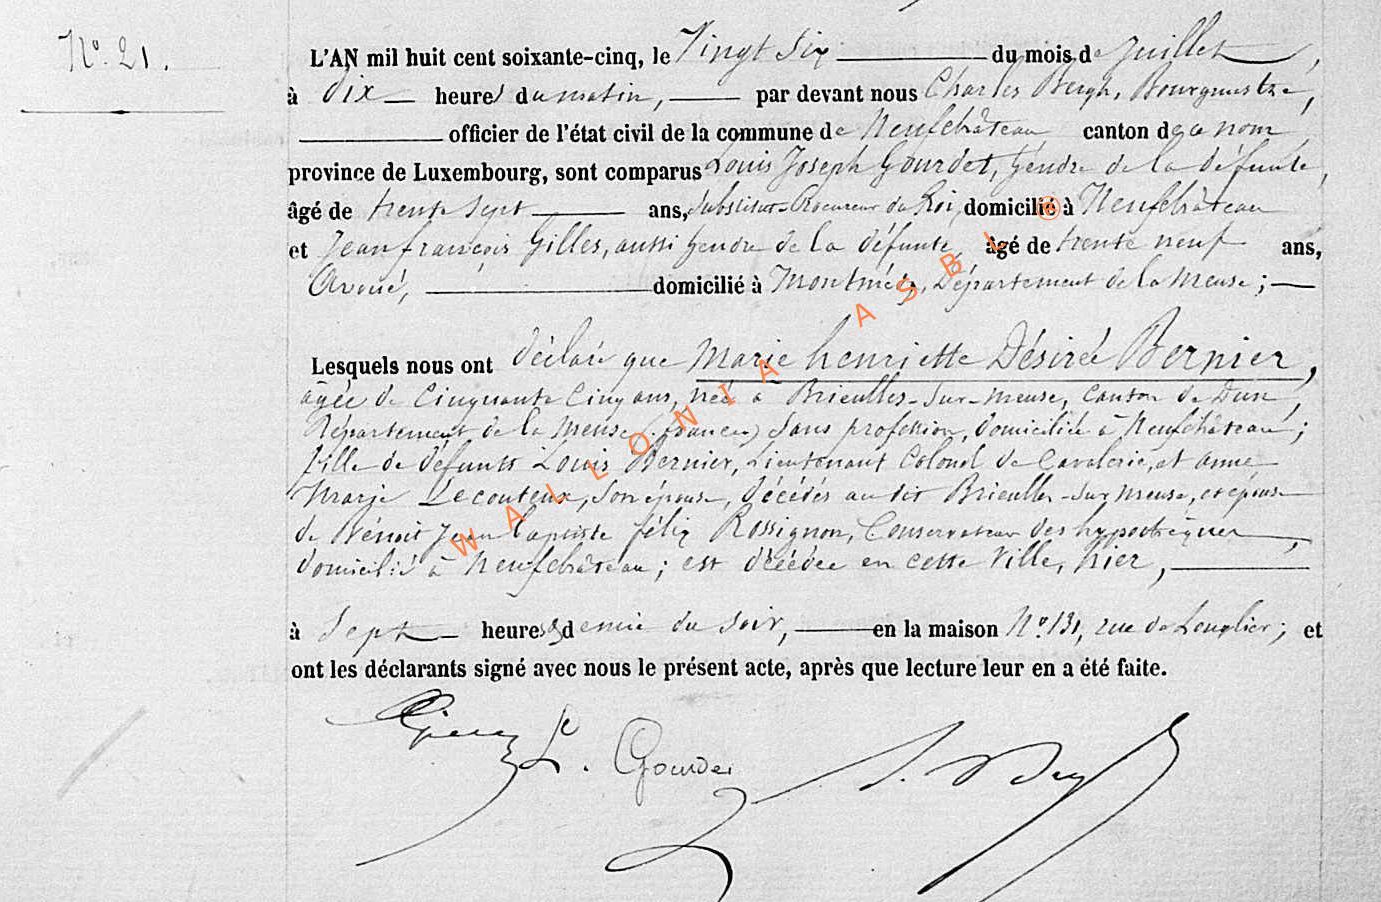 N° 21.
L'AN mil huit cent soixante-cinq, le Vingt Six du mois de Juillet,
à Dix heures du matin, par devant nous Charles Bergh, Bourgmestre,
officier de l'état civil de la commune de Neufchâteau canton de ce nom
province de Luxembourg, sont comparus Louis Joseph Gourdet, Gendre de la défunte,
âgé de trente sept ans, Substitut-Procureur du Roi, domicilié à Neufchâteau
et Jean françois Gilles, aussi Gendre de la défunte, âgé de trente neuf ans,
Avoué, domicilié à Montmédy, Département de la Meuse;
Lesquels nous ont déclaré que Marie henriette Désirée Bernier,
agée de Cinquante Cinq ans, née à Brieulles-Sur-Meuse, Canton de Dun,
Département de la Meuse (france) Sans profession, domiciliée à Neufchâteau;
fille de défunts Louis Bernier, Lieutenant Colonel de Cavalerie, et Anne
Marie Lecouteux, son épouse, décédés au dit Brieulles-Sur Meuse, et épouse
de Bénoit Jean baptiste félix Rossignon, Conservateur des hypothèques,
domicilié à Neufchâteau; est décédée en cette Ville, hier,
à Sept heures & demie du soir, en la maison N° 131, rue de Longlier; et
ont les déclarants signé avec nous le présent acte, après que lecture leur en a été faite.
L. Gourdet
WALLONIA ASBL ®